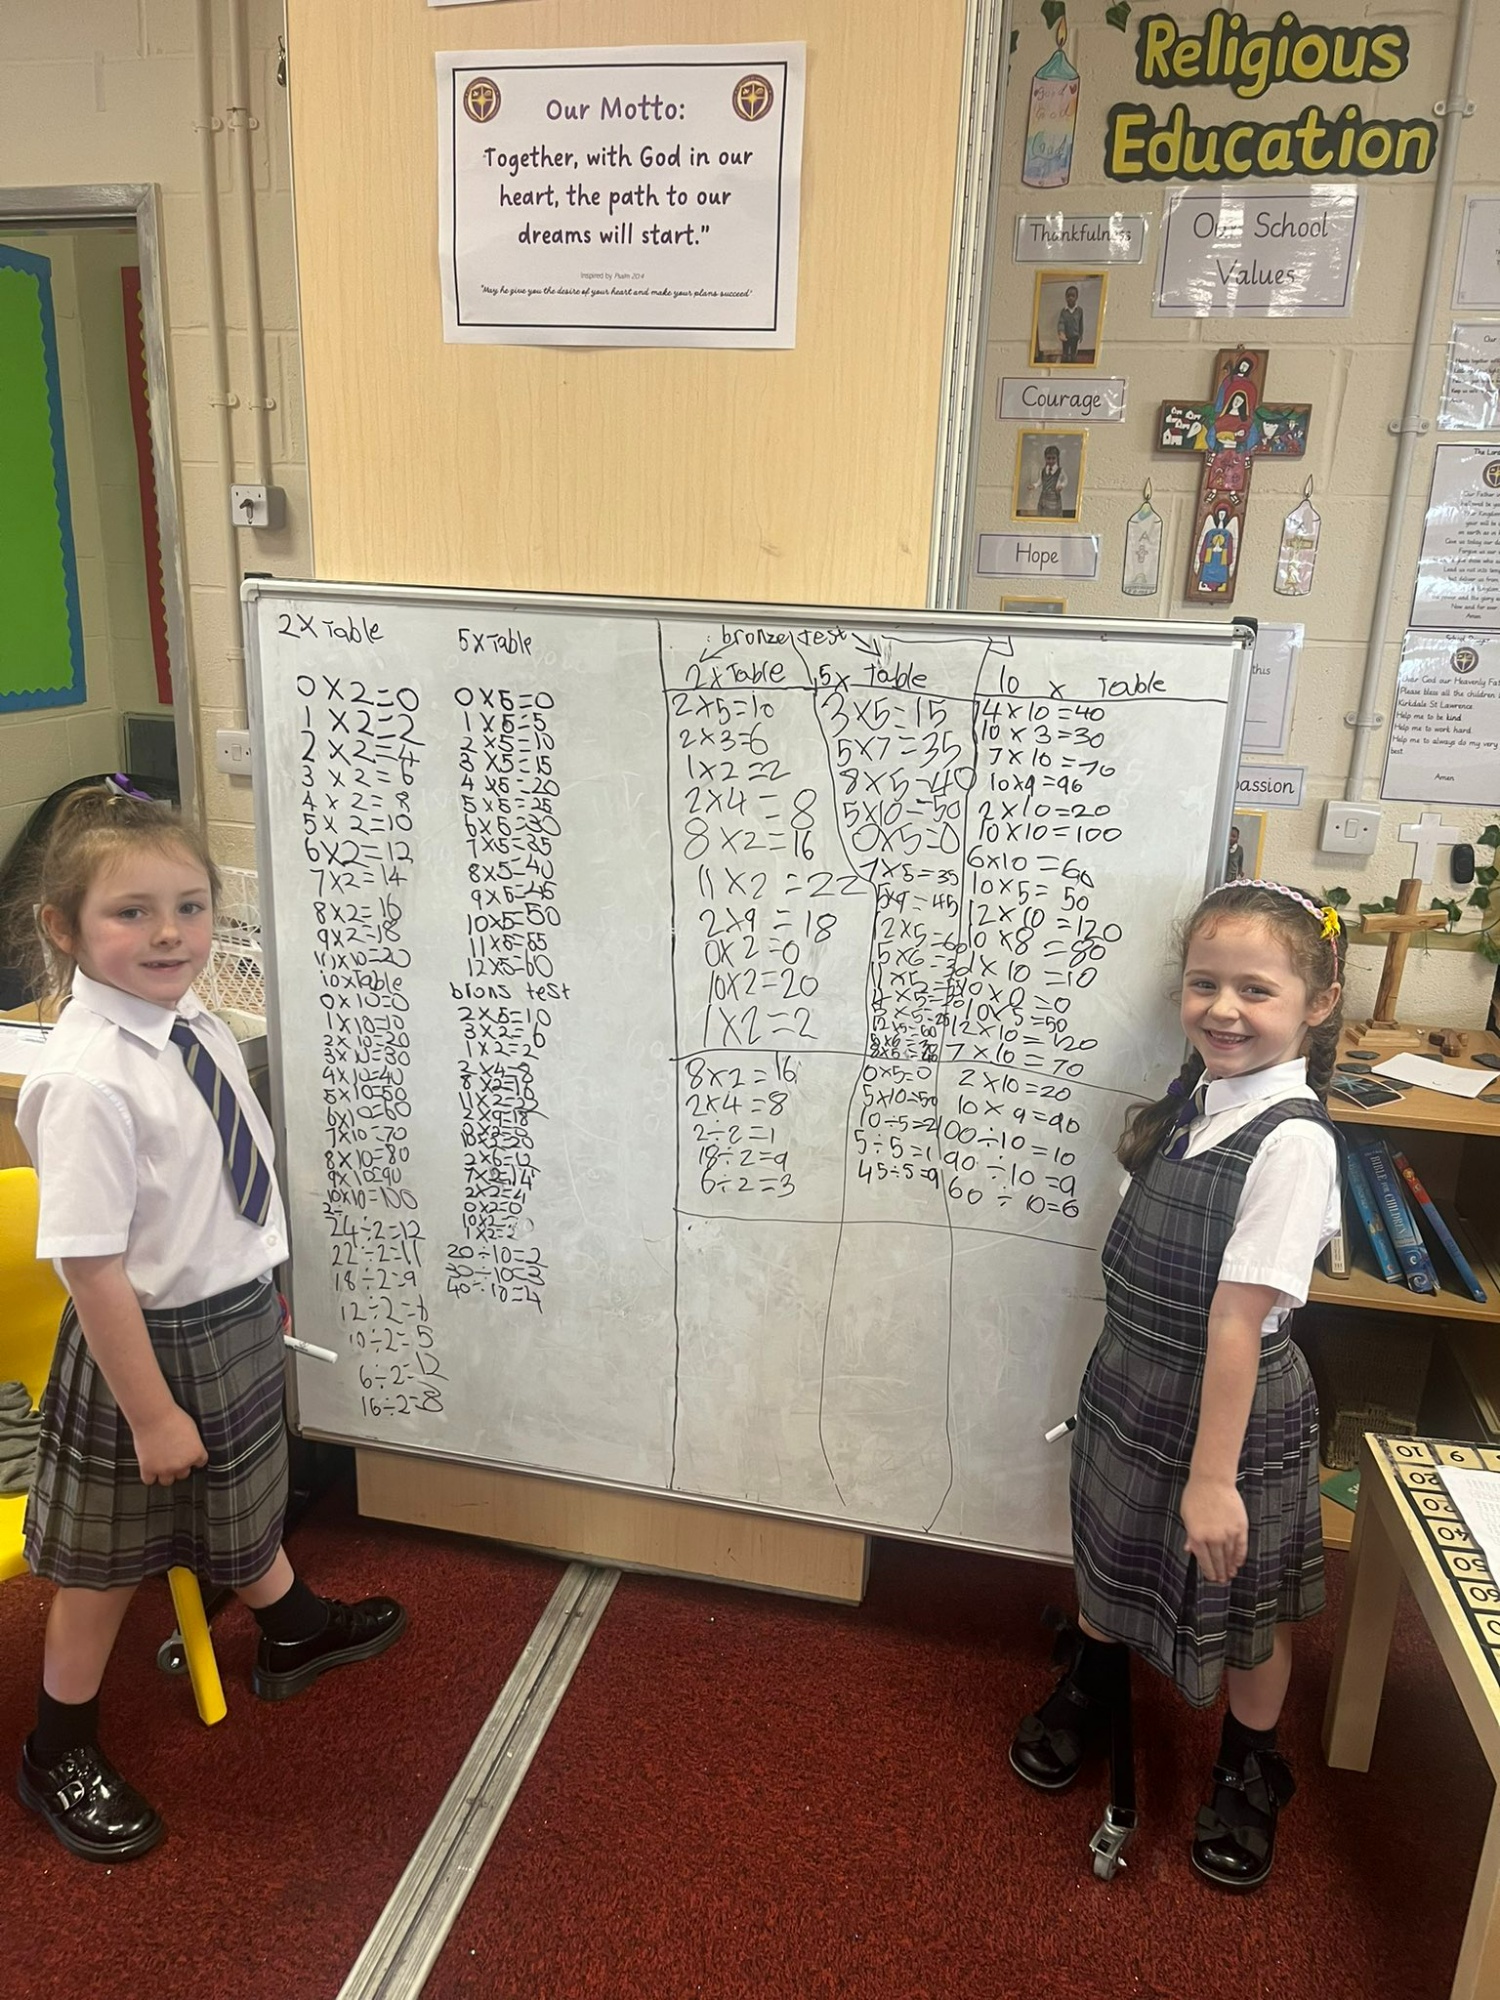 Our Motto:
Together, with God in our
heart, the path to our
dreams will start."
Inspired by Psalm 20:4
"May he give you the desire of your heart and make your plans succeed"
Religious
Education
Our School
Values
Thankfulness
Courage
Hope
2x Table
0x2=0
1x2=2
2x2=4
3x2=6
4x2=8
5x2=10
6x2=12
7x2=14
8x2=16
9x2=18
10x10=20
10xTable
0x10=0
1x10=10
2x10=20
3x10=30
4x10=40
5x10=50
6x10=60
7x10=70
8x10=80
9x10=90
10x10=100
2÷
24÷2=12
22÷2=11
18÷2=9
12÷2=6
10÷2=5
6÷2=12
16÷2=8
5x Table
0x5=0
1x5=5
2x5=10
3x5=15
4x5=20
5x5=25
6x5=30
7x5=35
8x5=40
9x5=45
10x5=50
11x5=55
12x5=60
brons test
2x5=10
3x2=6
1x2=2
2x4=8
8x2=16
11x2=22
2x9=18
2x6=12
7x2=14
2x2=4
0x2=0
1x2=2
20÷10=2
30÷10=3
40÷10=4
bronze test
2x Table
2x5=10
2x3=6
1x2=2
2x4=8
8x2=16
11x2=22
2x9=18
0x2=0
10x2=20
1x2=2
8x2=16
2x4=8
2÷2=1
18÷2=9
6÷2=3
5x Table
3x5=15
5x7=35
8x5=40
5x10=50
0x5=0
7x5=35
5x9=45
12x5=60
5x6=30
0x5=0
5x10=50
10÷5=2
5÷5=1
45÷5=9
10 x Table
4x10=40
10x3=30
7x10=70
10x9=90
2x10=20
10x10=100
6x10=60
10x5=50
12x10=120
10x8=80
1x10=10
10x0=0
10x5=50
12x10=120
7x10=70
2x10=20
10x9=90
100÷10=10
90÷10=9
60÷10=6
this
passion
Dear God our Heavenly Fat
Please bless all the children
Kirkdale St Lawrence
Help me to be kind
Help me to work hard
Help me to always do my very
best.
Amen
BIBLE FOR CHILDREN
10
9